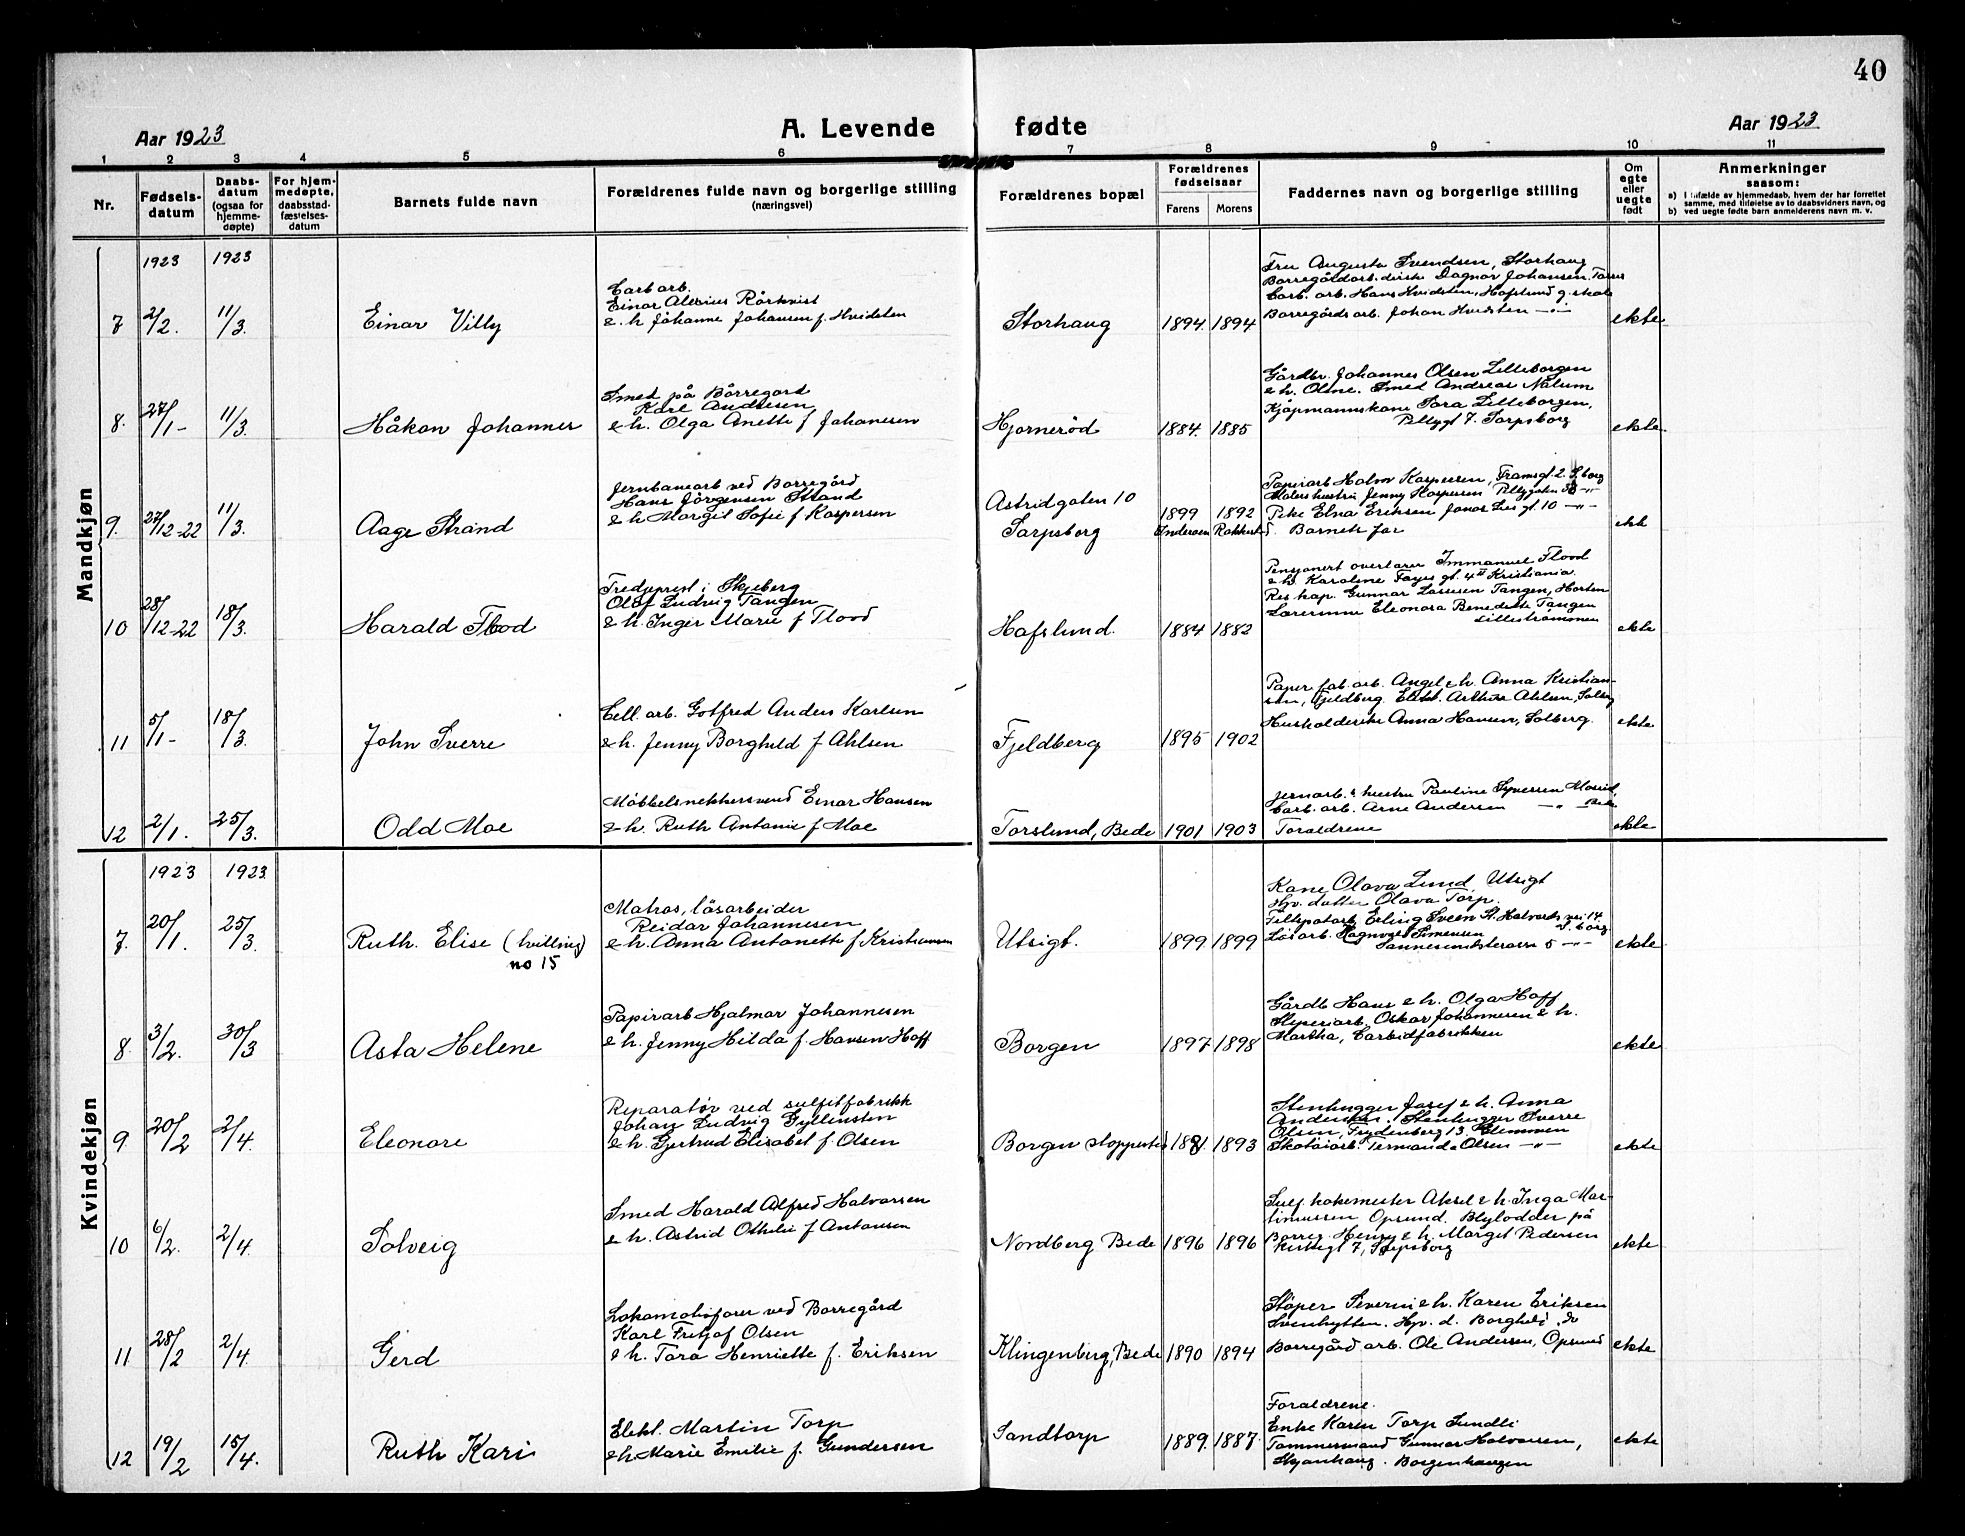 40
Aar 1923
A. Levende fødte
Aar 1923
1 2 3 4 5 6 7 8 9 10 11
Nr.
Fødsels-
datum
Daabs-
datum
(ogsaa for
hjemme-
døpte)
For hjem-
medøpte,
daabsstad-
fæstelses-
datum
Barnets fulde navn
Forældrenes fulde navn og borgerlige stilling
(næringsvei)
Forældrenes bopæl
Forældrenes
fødselsaar
Farens Morens
Faddernes navn og borgerlige stilling
Om
egte
eller
uegte
født
Anmerkninger
saasom:
a) i tilfælde av hjemmedaab, hvem der har forrettet
samme, med tilføielse av to daabsvidners navn, og
b) ved uegte fødte barn anmelderens navn m. v.
Mandkjøn
1923 1923
7 2/2. 11/3. Einar Villy
Carb arb.
Einar Alexius Rörkvist
& h. Johanne Johansen f. Hvidsten
Storhaug 1894 1894
Fru Augusta Svendsen, Storhaug
Borregårdarb. Dagny Johansen
Carb. arb. Hans Hvidsten, Hafslund g. skole
Borregårds arb. Johan Hvidsten -"-
ekte
8. 27/1- 11/3. Håkon Johannes
Smed på Borregård
Karl Andresen
& h. Olga Anette f Johansen
Hjørnerød 1884. 1885
Gårdbr. Johannes Olsen Lilleborgen
& h. Oline. Smed Andreas Nalum
Kjøpmannskone Tora Lilleborgen,
7. Sarpsborg
ekte
9. 27/12-22 11/3. Aage Strand
Jernbanearb ved Borregård
Hans Jörgensen Strand
& h Margit Sofie f Kaspersen
Astridgaten 10
Sarpsborg
1899 1892
Inderøen Rakkestad.
Papirarb Halvor Kaspersen, Framsgt. 2. S.borg
Malers hustru Jenny Kaspersen
Pike Elna Eriksen Jonas Lies gt. 10 -"-
Barnets far
ekte
10 28/12-22 18/3. Harald Flood
Tredjeprest i Skjeberg
Olaf Ludvig Tangen
& h. Inger Marie f Flood
Hafslund. 1884 1882
Pensjonert overlærer Immanuel Flood
& h. Karoline Fayes gt. 4 II Kristiania
Res. kap. Gunnar Lassesen Tangen, Horten
Lærerinne Eleonora Benedikte Tangen
Lillestrømmen
ekte
11 5/1- 18/3. John Sverre
Cell. arb. Gotfred Anders Karlsen
& h. Jenny Borghild f Ahlsen
Fjeldberg 1895 1902
Papir fab. arb. Angel & h. Anna Kristian-
sen, Fjeldberg. Elekt. Arthur Ahlsen, Solberg
Husholderske Anna Hansen, Solberg.
ekte
12 2/1. 25/3. Odd Moe
Möbbelsnekkersvend Einar Hansen
& h. Ruth Antonie f Moe
Torslund, Bede 1901 1903
Jernarb. & hustru Pauline Syversen
Carb. arb. Arne Andersen -"-
Foraldrene
ekte
Kvindekjøn
1923 1923
7. 20/1. 25/3. Ruth Elise (tvilling)
no 15
Matros, løsarbeider
Reidar Johannesen
& h. Anna Antonette f Kristiansen
Utsigt. 1899 1899
Kone Olava Lund, Utsigt
Hjv. datter Olava Torp.
Erling Sveen St. Halvards vei 14.
S. borg
Løsarb. Ragnvald Simensen
5 -"-
ekte
8 3/2. 30/3 Asta Helene
Papirarb Hjalmar Johannesen
& h. Jenny Hilda f. Hansen Hoff
Borgen 1897 1898
Gårdb Hans & h. Olga Hoff
Sliperiarb. Oskar Johannesen & h.
Martha, Carbidfabrikken
ekte
9 20/2 2/4. Eleonore
Reparatør ved sulfitfabrikk
Johan Ludvig Gyllensten
& h. Gjertrud Elisabet f. Olsen
Borgen 1893
Stenhugger Josef & h. Anna
Andersen. Stenhugger Sverre
Olsen, Frydenberg 13. Glemmen
Skotøiarb. Termanda Olsen -"-
ekte
10 6/2. 2/4. Solveig
Smed Harald Alfred Halvorsen
& h. Astrid Othelie f Antonsen
Nordberg Bede 1896 1896
Sulf. kokemester Aksel & h. Inga Mar-
tinussen Opsund. Blylodder på
Borreg. Henry & h. Margit Pedersen
7, Sarpsborg
ekte
11 28/2 2/4. Gerd
Lokomotivfører ved Borregård
Karl Fritjof Olsen
& h. Tora Henriette f. Eriksen
Klingenberg, Bede 1890 1894
Støper Severin & h. Karen Eriksen
Svenhytten. Hjv. d. Borghild do
Borregård arb. Ole Andersen, Opsund
ekte
12 19/2 15/4. Ruth Kari
Elekt. Martin Torp
& h. Marie Emilie f. Gundersen
Sandtorp 1889. 1887.
Foraldrene.
Enke Karen Torp Lundli
Tømmermand Gunnar Halvorsen,
Skjønhaug. Borgenhaugen
ekte